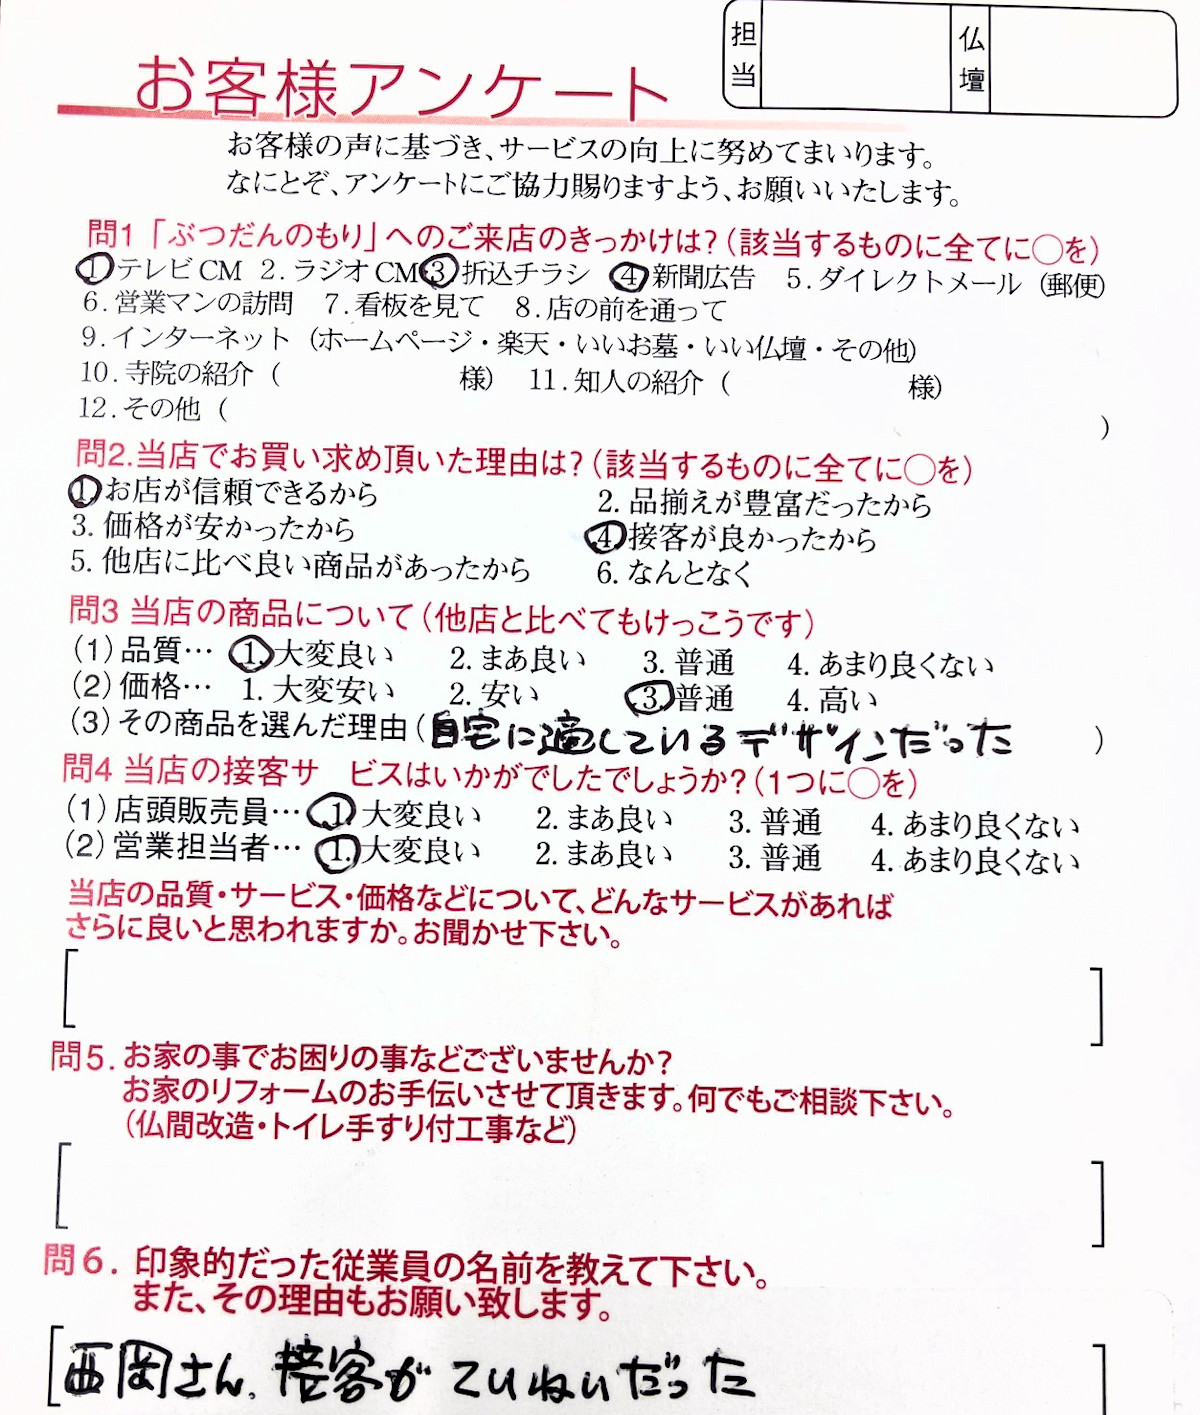 担当
仏壇
お客様アンケート
お客様の声に基づき、サービスの向上に努めてまいります。
なにとぞ、アンケートにご協力賜りますよう、お願いいたします。
問1「ぶつだんのもり」へのご来店のきっかけは?(該当するものに全てに○を)
1.テレビCM 2.ラジオCM 3.折込チラシ 4.新聞広告 5.ダイレクトメール(郵便)
6.営業マンの訪問 7.看板を見て 8.店の前を通って
9.インターネット(ホームページ・楽天・いいお墓・いい仏壇・その他)
10.寺院の紹介( 様) 11.知人の紹介( 様)
12.その他( )
問2.当店でお買い求め頂いた理由は?(該当するものに全てに○を)
1.お店が信頼できるから 2.品揃えが豊富だったから
3.価格が安かったから 4.接客が良かったから
5.他店に比べ良い商品があったから 6.なんとなく
問3 当店の商品について(他店と比べてもけっこうです)
(1)品質… 1.大変良い 2.まあ良い 3.普通 4.あまり良くない
(2)価格… 1.大変安い 2.安い 3.普通 4.高い
(3)その商品を選んだ理由(自宅に適しているデザインだった )
問4 当店の接客サ ビスはいかがでしたでしょうか?(1つに○を)
(1)店頭販売員… 1.大変良い 2.まあ良い 3.普通 4.あまり良くない
(2)営業担当者… 1.大変良い 2.まあ良い 3.普通 4.あまり良くない
当店の品質・サービス・価格などについて、どんなサービスがあれば
さらに良いと思われますか。お聞かせ下さい。
[ ]
問5.お家の事でお困りの事などございませんか?
お家のリフォームのお手伝いさせて頂きます。何でもご相談下さい。
(仏間改造・トイレ手すり付工事など)
[ ]
問6.印象的だった従業員の名前を教えて下さい。
また、その理由もお願い致します。
[西岡さん、接客がていねいだった ]